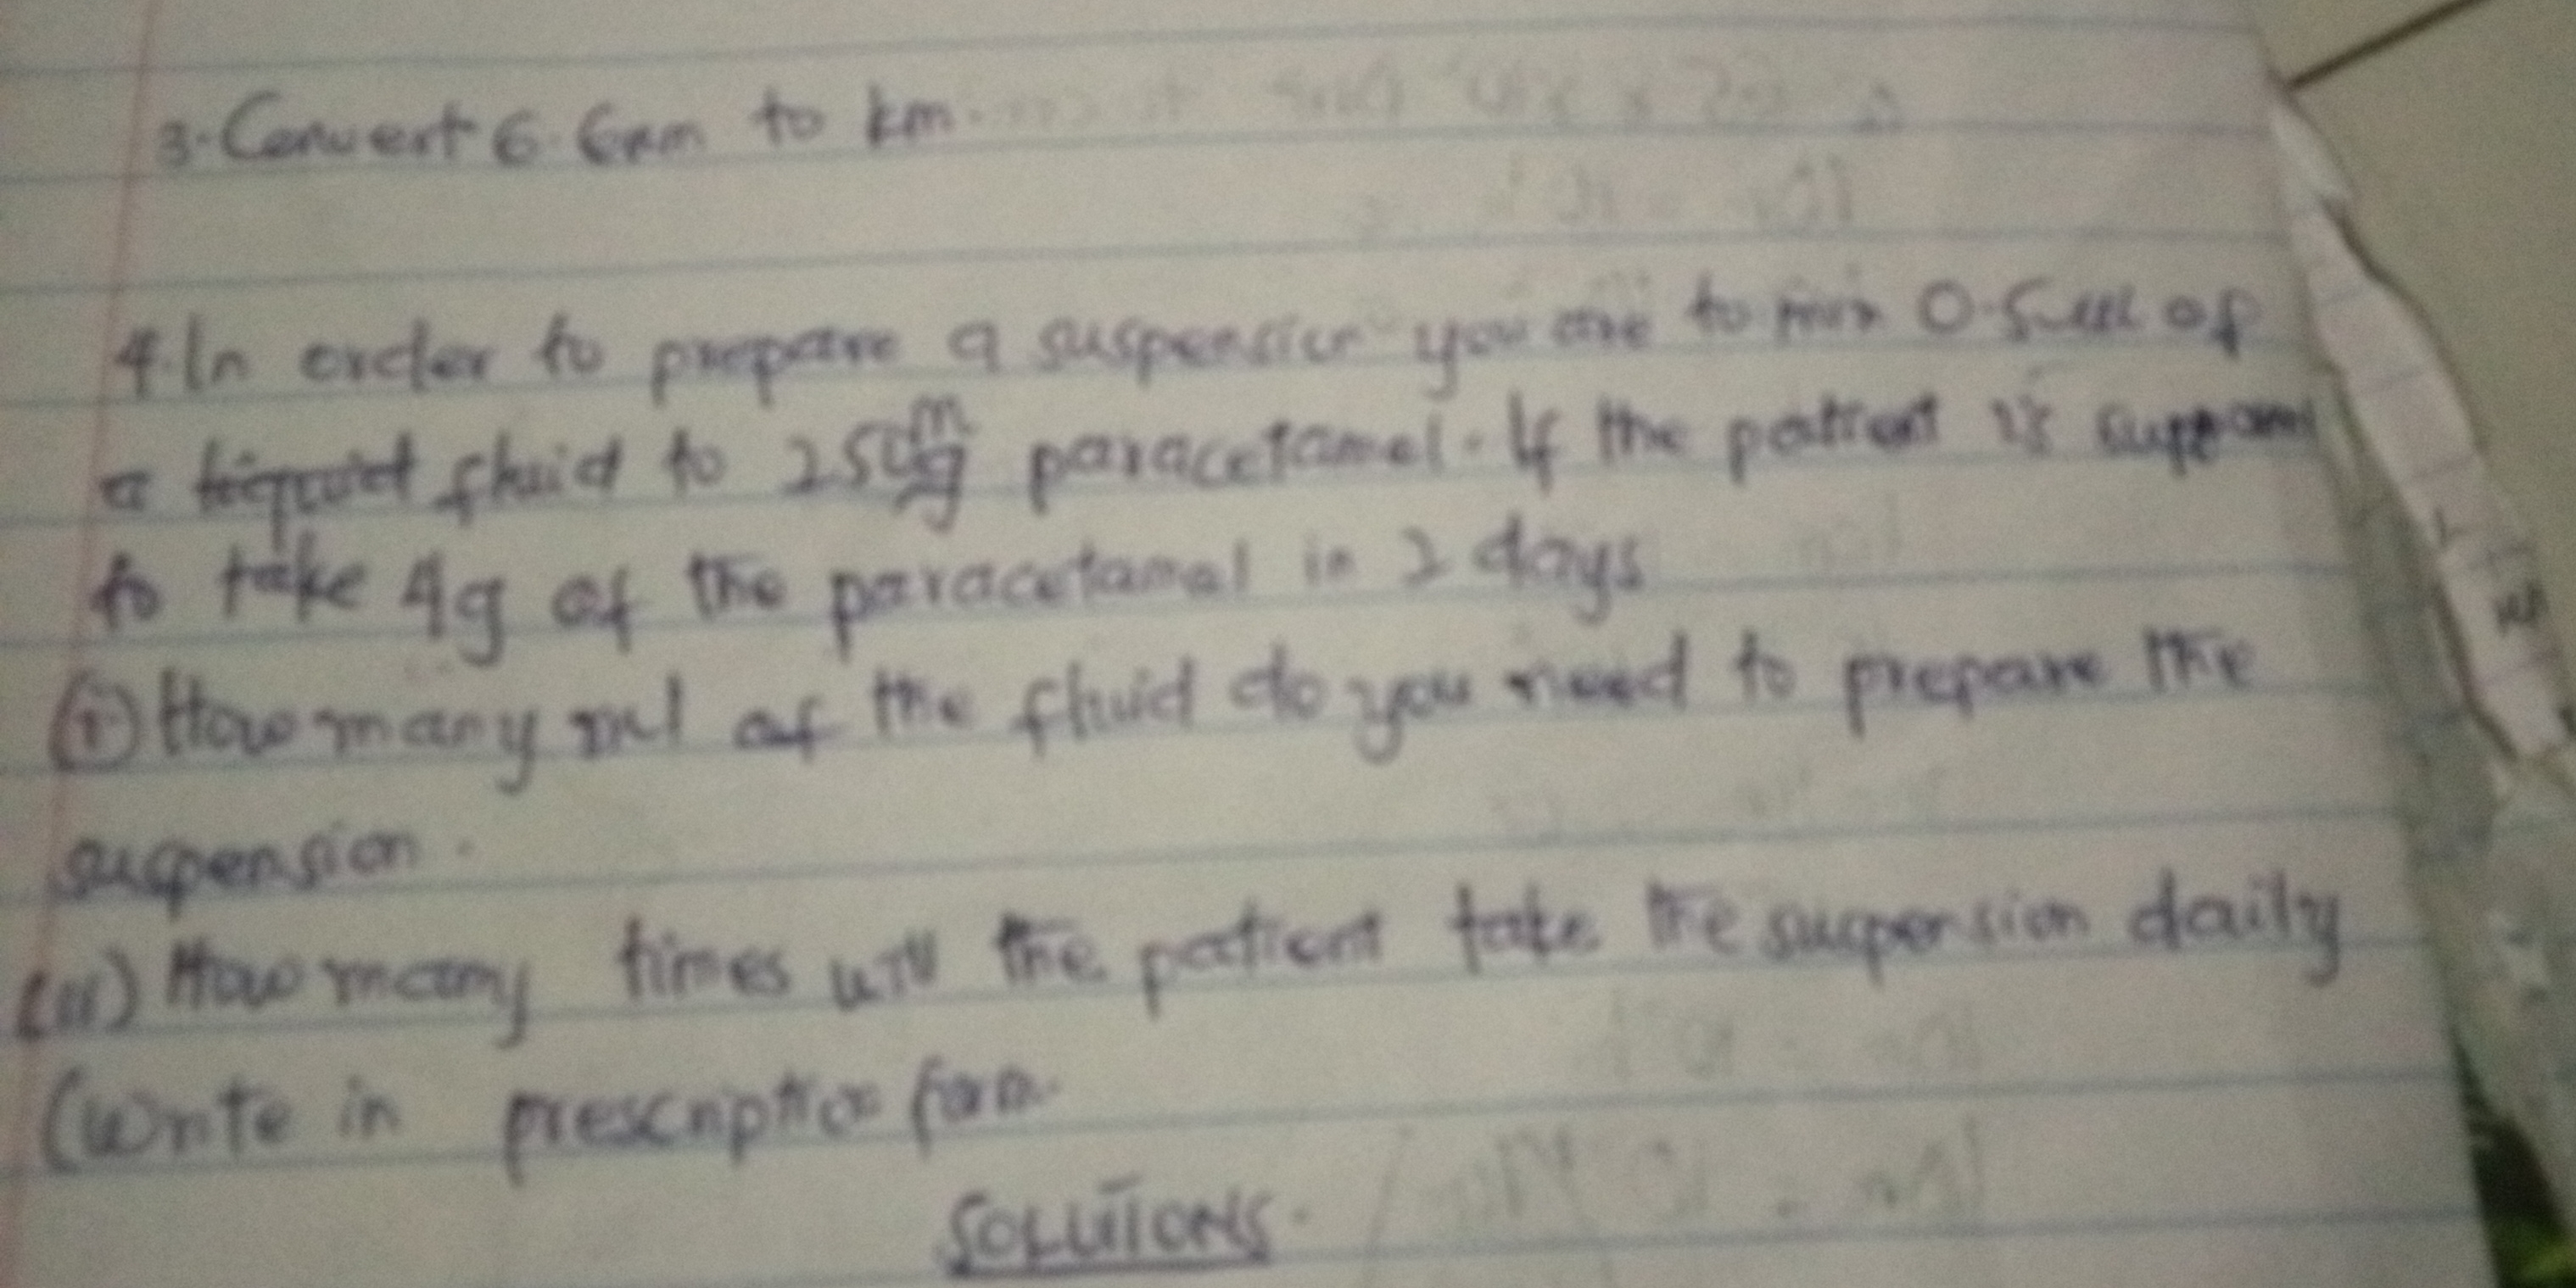 3. Convert 6.6nm to km.
4. In order to prepare a suspension you are to mix 0.5ml of
a liquid fluid to 250mg paracetamol. If the patient is
to take 4g of the paracetamol in 2 days
(i) How many ml of the fluid do you need to prepare the
suspension.
(ii) How many times will the patient take the suspension daily
(Write in prescription form.
SOLUTIONS.